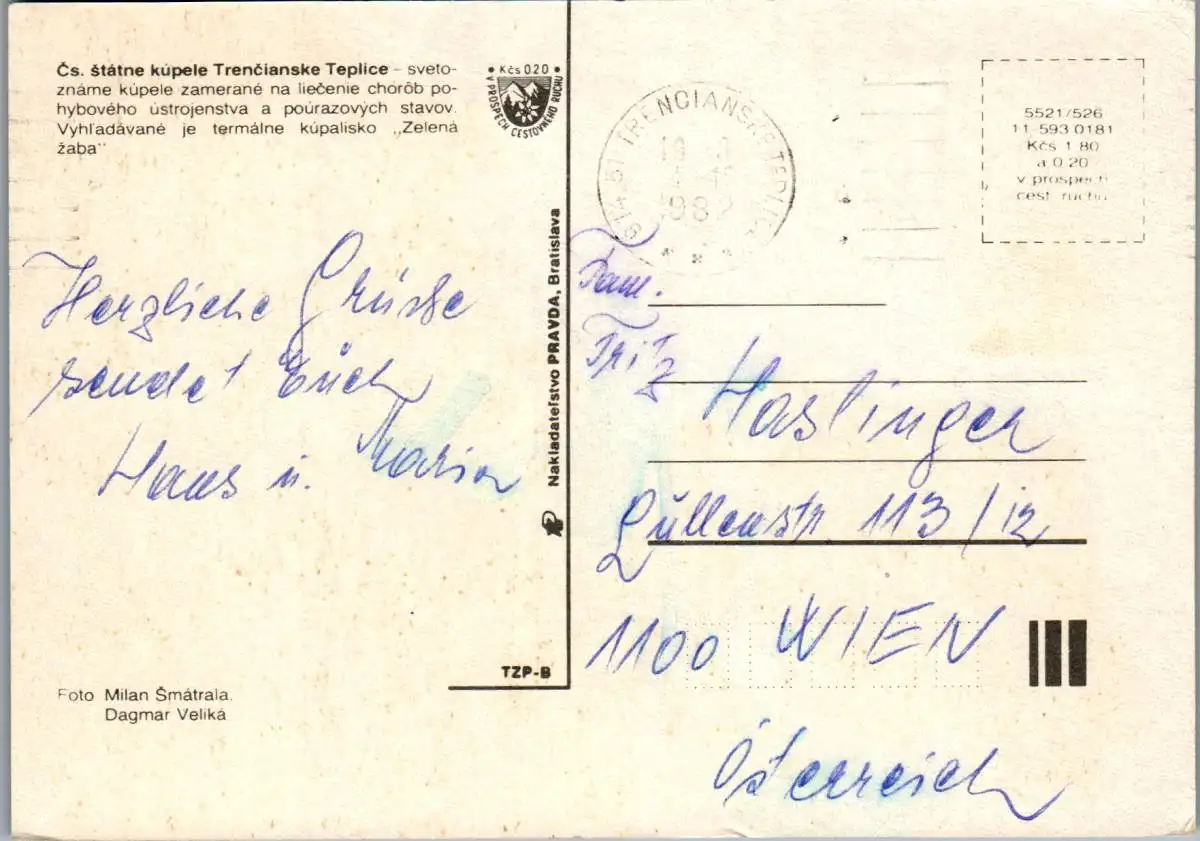 Čs. štátne kúpele Trenčianske Teplice – sveto-
známe kúpele zamerané na liečenie chorôb po-
hybového ústrojenstva a poúrazových stavov.
Vyhľadávané je termálne kúpalisko „Zelená
žaba"
• Kčs 020 •
V PROSPECH CESTOVNÉHO RUCHU
Herzliche Grüsse
sendet Euch
Hans u. Maria
Foto Milan Šmátrala.
Dagmar Veliká
TZP-B
Nakladateľstvo PRAVDA, Bratislava
914 51 TRENČIANSKE TEPLICE
982
5521/526
11-593 0181
Kčs 1 80
a 0.20
v prospech
cest. ruchu
Fam.
Fritz
Haslinger
113/12
1100 WIEN
Österreich